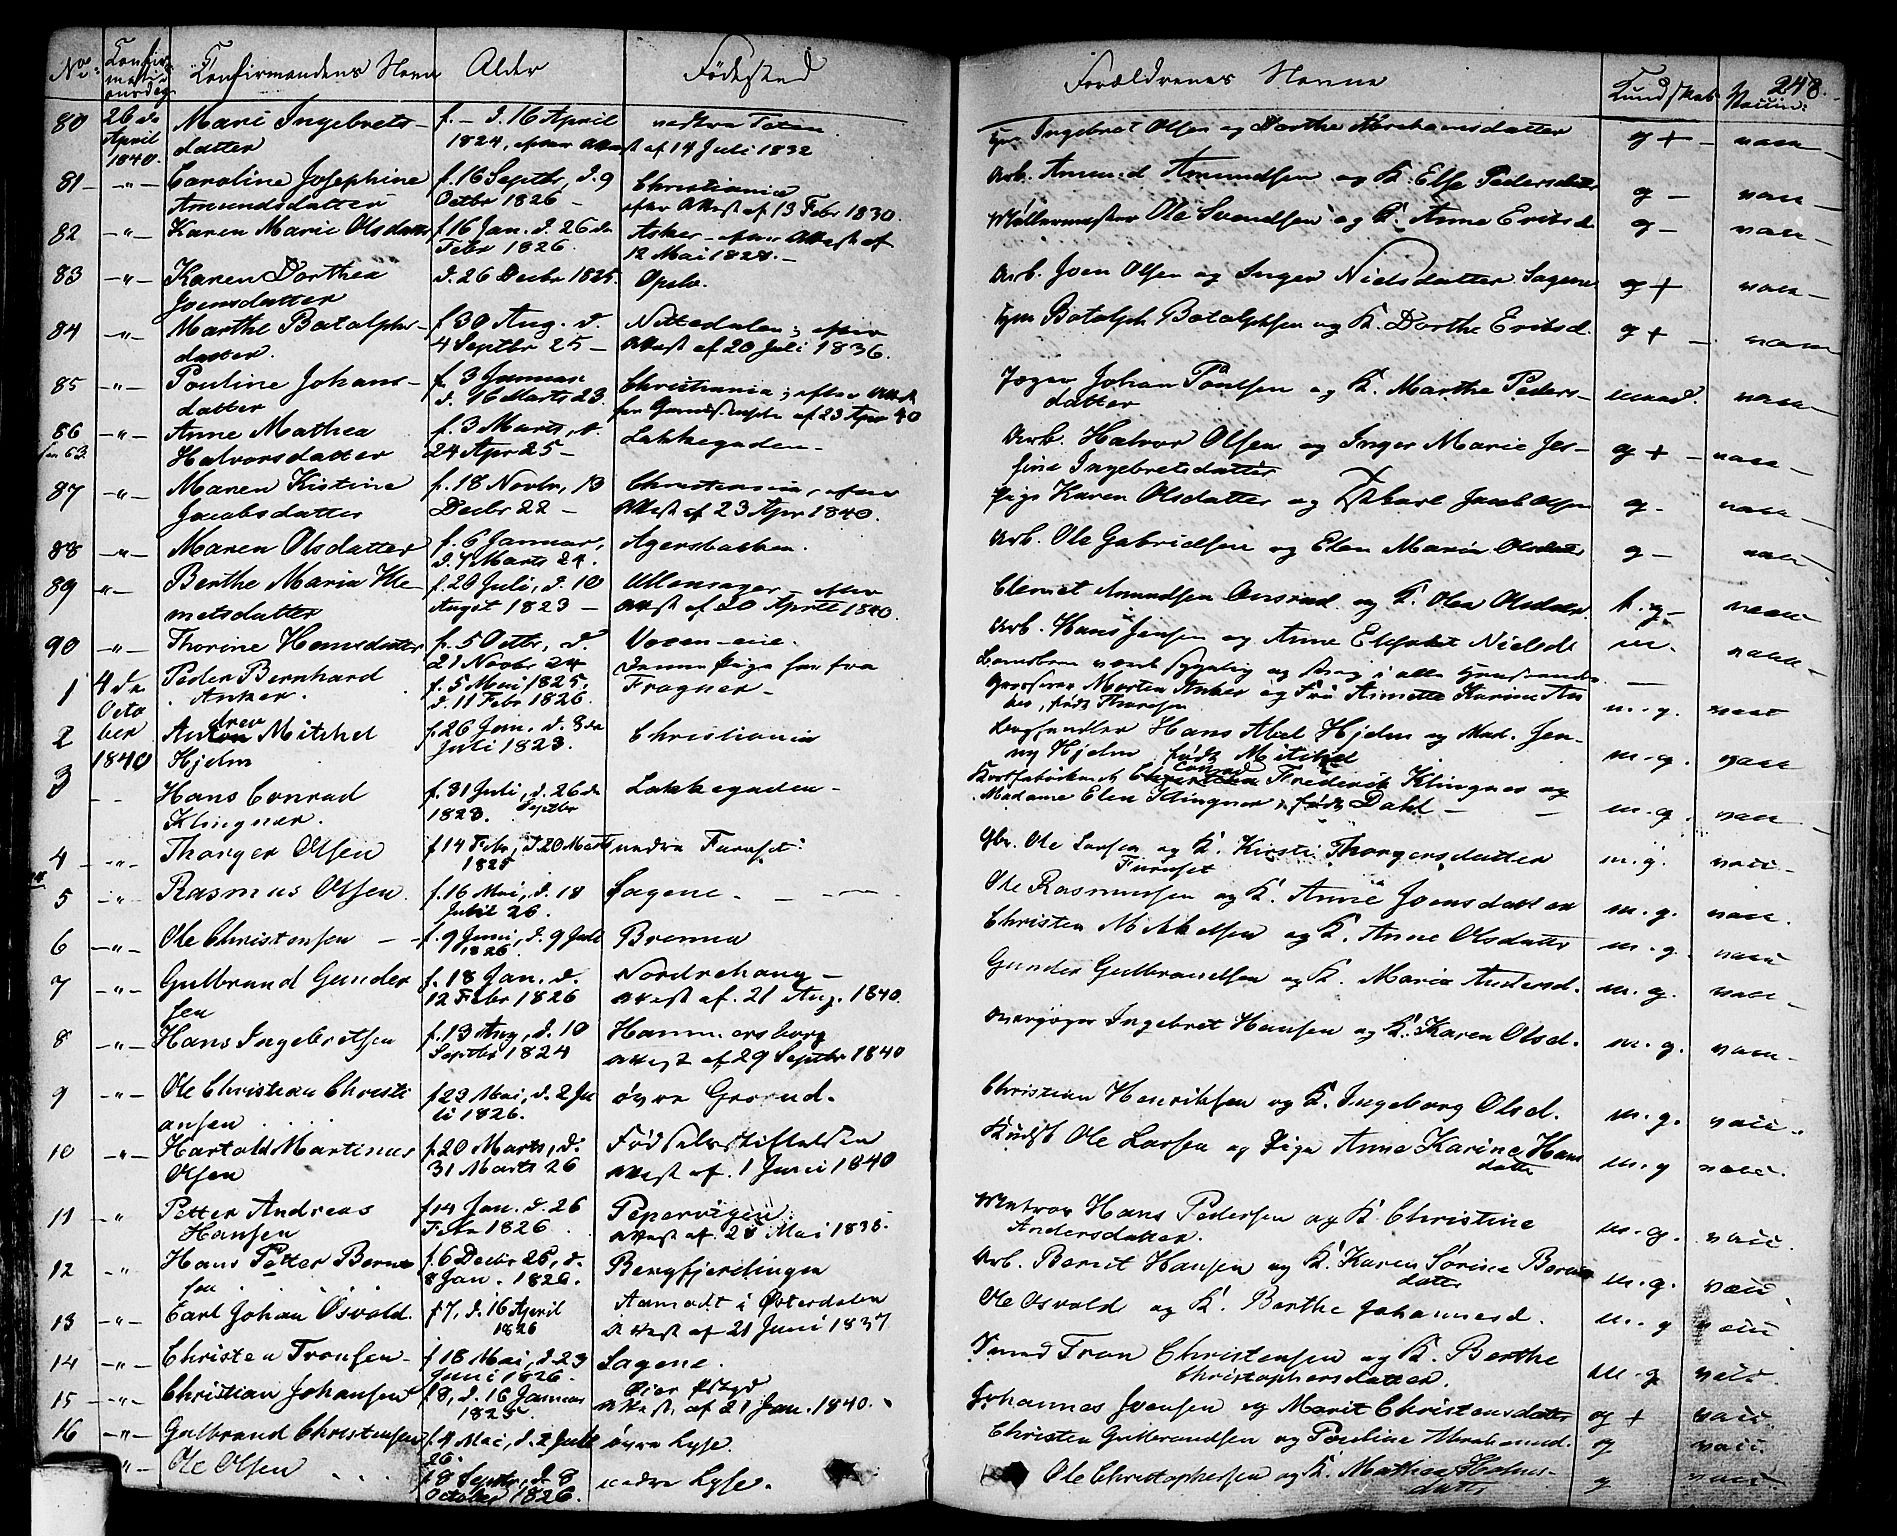 248.
No. Confirmationsdag Confirmandens Navn Alder Fødested Forældrenes Navne Kundskab Vaccin:
80 26de April 1840. Mari Ingebretsdatter f. – d. 16 April 1824, efter Attest af 14 Juli 1832 nedre Toten Ingebret Olsen og Dorthe Abrahamsdatter g + vacc
81 –"– Caroline Josephine Amundsdatter f. 16 Septbr, d. 9 Octbr 1826 – Christiania efter Attest af 13 Febr 1830. Arb. Amund Amundsen og K. Else Pedersdatter g – vacc –
82 –"– Karen Marie Olsdatter f 16 Jan. d. 26 de Febr 1826. Asker – efter Attest af 12 Mai 1828. – Møllermester Ole Svendsen og K. Anne Eriksd. g – vacc –
83 –"– Karen Dorthea Joensdatter d. 26 Decbr 1825. Opslo. Arb. Joen Olsen og Inger Nielsdatter Sagene g + vacc –
84 –"– Marthe Botolphsdatter. f 30 Aug. d. 4 Septbr 25 – Nittedalen; efter Attest af 20 Juli 1836. Botolph Botolphsen og K. Dorthe Eriksd. g + vacc
85 –"– Pouline Johansdatter f. 3 Januar d. 16 Marts 23. Christiania; efter Attest fra af 23 Apr 40 Jæger Johan Poulsen og K. Marthe Pedersdatter maad. vacc –
86 –"– Anne Mathea Halvorsdatter f. 3 Marts, d. 24 Apr 25 – Lakkegaden – Arb. Halvor Olsen og Inger Marie Jesfine Ingebretsdatter g + – vacc –
87 –"– Maren Kistine Jacobsdatter f. 18 Novbr, 13 Decbr 22 – Christiania, efter Attest af 23 Apr 1840. Pige Karen Olsdatter og Jacob Olsen g – vacc –
88 –"– Maren Olsdatter f. 6 Januar, d. 7 Marts 24. Agersbakken. Arb. Ole Gabrielsen og Elen Maria Olsdatter g – vacc
89 –"– Berthe Maria Klemetsdatter f. 20 Juli, d. 10 August 1823 – Ullensager – efter Attest af 20 April 1840. Clemet Amundsen og K. Olea Olsdatter t. g – vacc
90 –"– Thorine Hansdatter f. 5 Octbr, d. 21 Novbr 24 Voxen-eie. Denne Pige har fra Arb. Hans Jensen og Anne Elisabet Nielsd m. vacc
Barndom været sygelig og svag i alle
1 4 de October 1840 Peder Bernhard Anker. f. 5 Mai 1825, d. 11 Febr 1826. Frogner – Morten Anker og Fru Annette Karine Anker, født m. g. vacc
2 Andrew Mitchel Hjelm f 26 Jan. d. 8 de Juli 1823. Christiania Hans Abel Hjelm og Mad. Jenny Hjelm født Mitchel m. g. vacc
3 Hans Conrad Klingner. f. 31 Juli, d. 26 de Septbr 1823. Lakkegaden – Conrad Frederik Klingner og Madame Elen Klingner, født Dahl – m. g. vacc –
4 –"– Thorger Olsen f 14 Febr, d. 20 Marts 1825 nedre Furuset. Gbr. Ole Larsen og K. Kirsti Thorgersdatter Furuset m. g. vacc –
5 –"– Rasmus Olsen. f. 16 Mai, d. 18 Julii 26. Sagene. – – Ole Rasmussen og K. Anne Joensdatter m. g. vacc.
6 –"– Ole Christensen – f. 9 Juni, d. 9 Juli 1826. Brenna Christen Mikkelsen og K. Anne Olsdatter m. g. vacc
7 –"– Gulbrand Gundersen f. 18 Jan. d. 12 Febr 1826 Nordrehoug – Attest af. 21 Aug. 1840. Gunder Gulbrandsen og K. Maria Andersd. m. g. vacc –
8 –"– Hans Ingebretsen f. 13 Aug, d. 10 Septbr 1824 Hammersborg Attest af 29 Septbr 1840 Ingebret Hansen og K. Karen Olsd. m. g. vacc –
9 –"– Ole Christian Christiansen f 23 Mai, d. 2 Juli 1826. øvre Grorud. Christian Henriksen og K. Ingeborg Olsd. m. g. vacc.
10 –"– Hartold Martinus Olsen f. 20 Marts, d. 31 Marts 26 Fødselsstiftelsen Attest af. 1 Juni 1840 Kudsk Ole Larsen og Pige Anne Karine Hansdatter m. g vacc.
11 –"– Petter Andreas Hansen f 14 Jan. d. 26 Febr 1826. Pepervigen Attest af. 28 Mai 1835. Matros Hans Pedersen og K. Christine Andersdatter. m. g. vacc.
12 –"– Hans Petter Berntsen f. 6 Decbr 25, d. 8 Jan. 1826. Bergfjerdingen Arb. Bernt Hansen og K. Karen Sørine Berntsdatter m. g. vacc.
13 –"– Carl Johan Osvold. f 7, d. 16 April 1826 Aamodt i Østerdalen Attest af 21 Juni 1837 Ole Osvold og K. Berthe Johannesd. m. g vacc
14 –"– Christen Tronsen – f 18 Mai, d. 23 Juni 1826. Sagene. Tron Christensen og K. Berthe Christophersdatter. m. g vacc.
15 –"– Christian Johansen f 8, d. 16 Januar 1825. Øier Attest af 21 Jan. 1840. Johannes Joensen og Marit Christensdatter g + vacc.
16 –"– Gulbrand Christensen f. 4 Mai, d. 2 Juli 26. øvre Lysse. Christen Gulbrandsen og Pouline Abrahamsd. g vacc.
–"– Ole Olsen f 8 Septbr, d. 8 October 1826. nedre Lysse. Ole Christophersen og K. Mathea Halvorsdatter g vacc